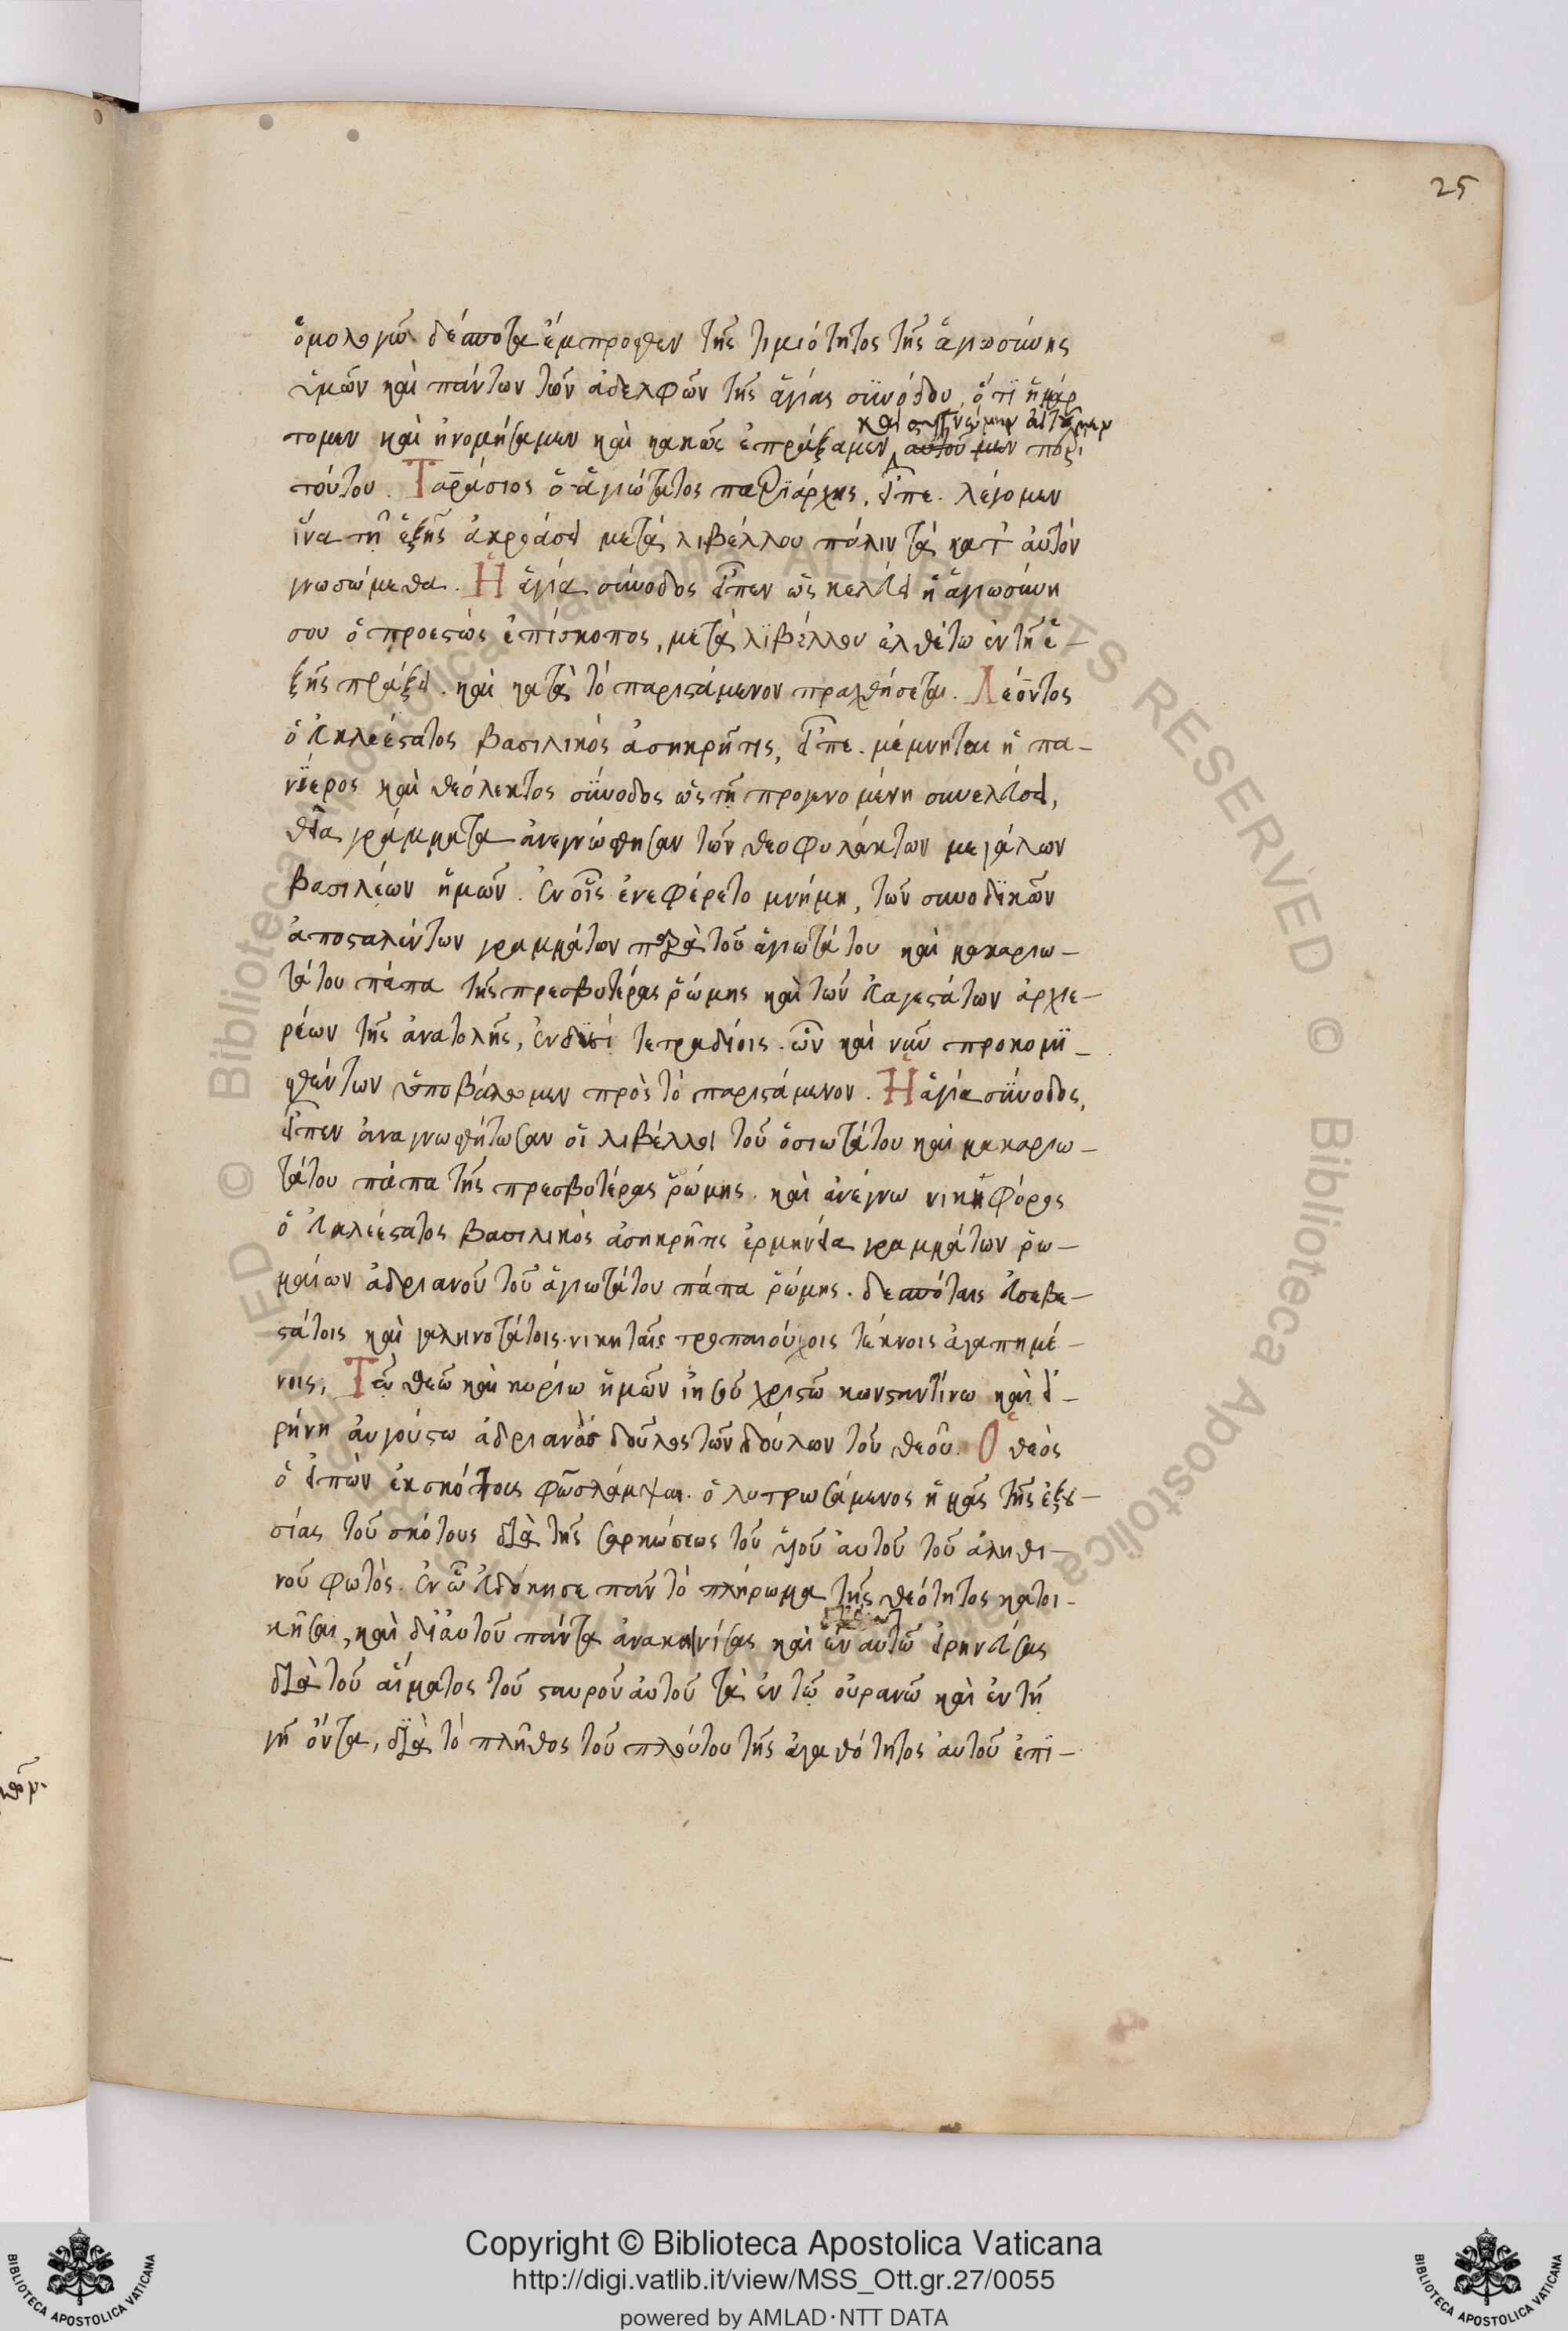 25
ὁμολογῶ δέσποτα ἔμπροσθεν τῆς τιμιότητος τῆς ἁγιωσύνης
ὑμῶν καὶ πάντων τῶν ἀδελφῶν τῆς ἁγίας συνόδου, ὅτι ἡμάρ
τομεν καὶ ἠνομήσαμεν καὶ κακῶς ἐπράξαμεν περὶ
τούτου. Ταράσιος ὁ ἁγιώτατος πατριάρχης, εἶπε. λέγομεν
ἵνα τῇ ἑξῆς ἀκροάσει μετὰ λιβέλλου πάλιν τὰ κατ' αὐτὸν
γνωσώμεθα. Ἡ ἁγία σύνοδος εἶπεν ὡς κελεύει ἡ ἁγιωσύνη
σου ὁ προεστὼς ἐπίσκοπος, μετὰ λιβέλλου ἐλθέτω ἐν τῇ ἑ-
ξῆς πράξει. καὶ κατὰ τὸ παριστάμενον πραχθήσεται. Λεόντος
ὁ εὐκλεέστατος βασιλικὸς ἀσηκρῆτις, εἶπε. μέμνηται ἡ πα-
νίερος καὶ θεόλεκτος σύνοδος ὡς τῇ προγενομένη συνελεύσει,
θεῖα γράμματα ἀνεγνώσθησαν τῶν θεοφυλάκτων μεγάλων
βασιλέων ἡμῶν. Ἐν οἷς ἐνεφέρετο μνήμη, τῶν συνοδικῶν
ἀποσταλέντων γραμμάτων παρὰ τοῦ ἁγιωτάτου καὶ μακαριω-
τάτου πάπα τῆς πρεσβυτέρας ῥώμης καὶ τῶν εὐαγεστάτων ἀρχιε-
ρέων τῆς ἀνατολῆς, ἐν δυσὶ τετραδίοις. ὧν καὶ νῦν προκομι-
σθέντων ὑποβάλομεν πρὸς τὸ παριστάμενον. Ἡ ἁγία σύνοδος,
εἶπεν ἀναγνωσθήτωσαν οἱ λιβέλλοι τοῦ ὁσιωτάτου καὶ μακαριω-
τάτου πάπα τῆς πρεσβυτέρας ῥώμης. καὶ ἀνέγνω νικηφόρος
ὁ εὐκλεέστατος βασιλικὸς ἀσηκρῆτις ἑρμηνεία γραμμάτων ῥω-
μαίων ἀδριανοῦ τοῦ ἁγιωτάτου πάπα ῥώμης. δεσπόταις εὐσεβε-
στάτοις καὶ γαληνοτάτοις. νικηταῖς τροπαιούχοις τέκνοις ἀγαπημέ-
νοις, Τῷ θεῶ καὶ κυρίω ἡμῶν ἰησοῦ χριστῶ κωνσταντίνω καὶ εἰ-
ρήνη αὐγούστω ἀδριανὸς δοῦλος τῶν δούλων τοῦ θεοῦ. Ὁ θεὸς
ὁ εἰπὼν ἐκ σκότους φῶς λάμψαι. ὁ λυτρωσάμενος ἡμᾶς τῆς ἐξου-
σίας τοῦ σκότους διὰ τῆς σαρκώσεως τοῦ υἱοῦ αὐτοῦ τοῦ ἀληθι-
νοῦ φωτὸς. Ἐν ὧ εὐδόκησε πᾶν τὸ πλήρωμα τῆς θεότητος κατοι-
κῆσαι, καὶ δι' αὐτοῦ πάντα ἀνακαινίσας καὶ ἐν αὐτῶ εἰρηνεύσας
διὰ τοῦ αἵματος τοῦ σταυροῦ αὐτοῦ τὰ ἐν τῶ οὐρανῶ καὶ ἐν τῇ
γῇ ὄντα, διὰ τὸ πλῆθος τοῦ πλούτου τῆς ἀγαθότητος αὐτοῦ ἐπι-
Copyright © Biblioteca Apostolica Vaticana
http://digi.vatlib.it/view/MSS_Ott.gr.27/0055
powered by AMLAD·NTT DATA